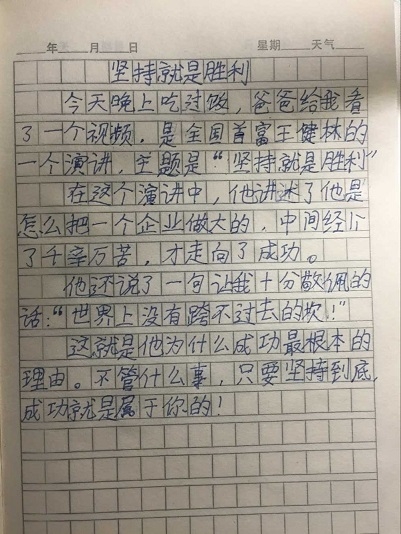 年 月 日 星期 天气
坚持就是胜利
今天晚上吃过饭，爸爸给我看
了一个视频，是全国首富王健林的
一个演讲，主题是“坚持就是胜利”
在这个演讲中，他讲述了他是
怎么把一个企业做大的，中间经历
了千辛万苦，才走向了成功。
他还说了一句让我十分敬佩的
话：“世界上没有跨不过去的坎！”
这就是他为什么成功最根本的
理由。不管什么事，只要坚持到底，
成功就是属于你的！